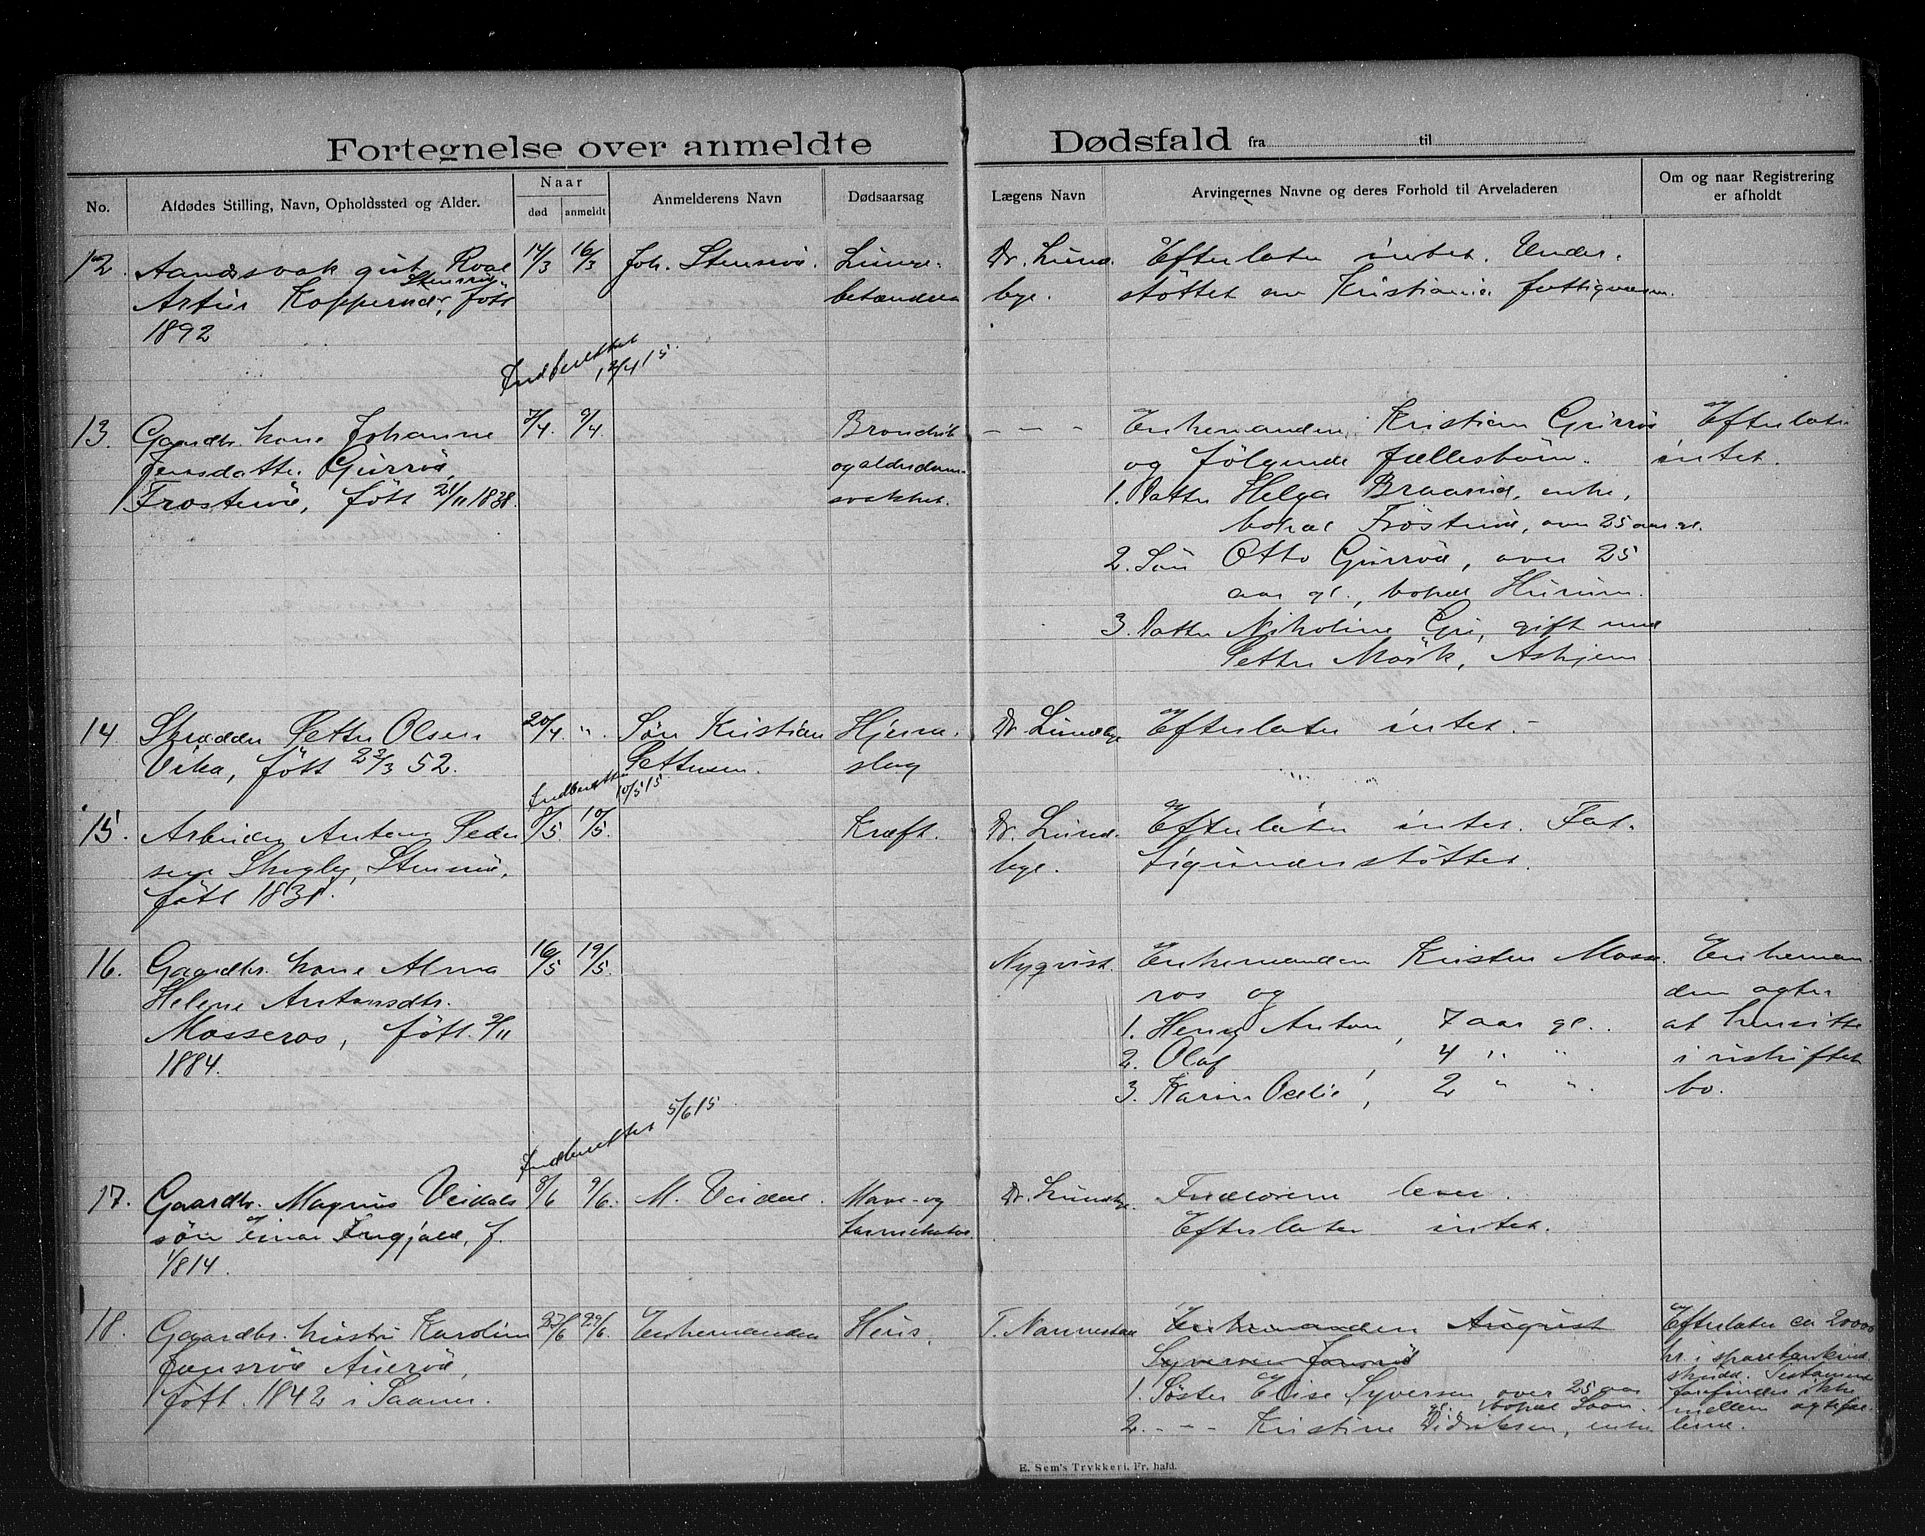 Fortegnelse over anmeldte Dødsfald fra til
No.
Afdødes Stilling, Navn, Opholdssted og Alder.
Naar
død
anmeldt
Anmelderens Navn
Dødsaarsag
Lægens Navn
Arvingernes Navne og deres Forhold til Arveladeren
Om og naar Registrering
er afholdt
12. Aandssvak gut Roal
Stensrø,
Artur Koppernæs, født
1892
14/3 16/3
Joh. Stensrø.
Lunge-
betændelse
Dr. Lund-
bye.
Efterlater intet. Under-
støttet av Kristiania fattigvæsen.
Indberettet
12/4 15.
13. Gaardbr. kone Johanne
Jensdatter Gurrød,
Frosterød, født 21/11 1838.
7/4 9/4
Bronchit
og alderdoms-
svakhet.
- - -
Enkemanden Kristian Gurrød
og følgende fællesbørn.
1. Datter Helga Braarud, enke,
bopæl Frosterød, over 25 aar gl.
2. Søn Otto Gurrød, over 25
aar gl., bopæl Hurum.
3. Datter Nikoline Gu, gift med
Petter Mørk, Askjem.
Efterlater
intet.
14. Skrædder Petter Olsen
Vika, født 22/3 52.
20/4 "
Søn Kristian
Pettersen.
Hjerne-
slag
Dr. Lundbye
Efterlater intet.
Indberettet
10/5 15
15. Arbeider Anton Peder
sen Skogly, Stensrød,
født 1831.
8/5 10/5
Kræft.
Dr. Lund-
bye.
Efterlater intet. Fat-
tigunderstøttet.
16. Gaardbr. kone Alma
Helene Antonsdtr.
Masseros, født 9/11
1884.
16/5 19/5
Nyqvist.
Enkemanden Kristen Masse
ros og
1. Henry Anton, 7 aar gl.
2. Olaf, 4 " "
3. Karin Ocelie, 2 " "
Enkeman-
den agter
at hensitte
i uskiftet
bo.
Indberettet 5/6 15
17. Gaardbr. Magnus Veidals
søn Einar Ingjald, f.
1/8 14.
8/6 9/6.
M. Veidal.
Mave- og
tarmekatar
Dr. Lundbye.
Forældrene lever.
Efterlater intet.
18. Gaardbr. hustru Karoline
Jansrød Auerød,
født 1842 i Saaner.
22/6 29/6.
Enkemanden
Hans.
T. Nannestad
Enkemanden August
Syversen Jansrød
1. Søster Elise Syversen over 25 aar
gl. bopæl Soon.
2. - - Kristine Didriksen, enke
Efterlater ca 20000
kr. i sparebankind
skudd. Testament
forefindes ikke
mellem ægtefæl-
lerne.
E. Sem's Trykkeri. Fr. hald.